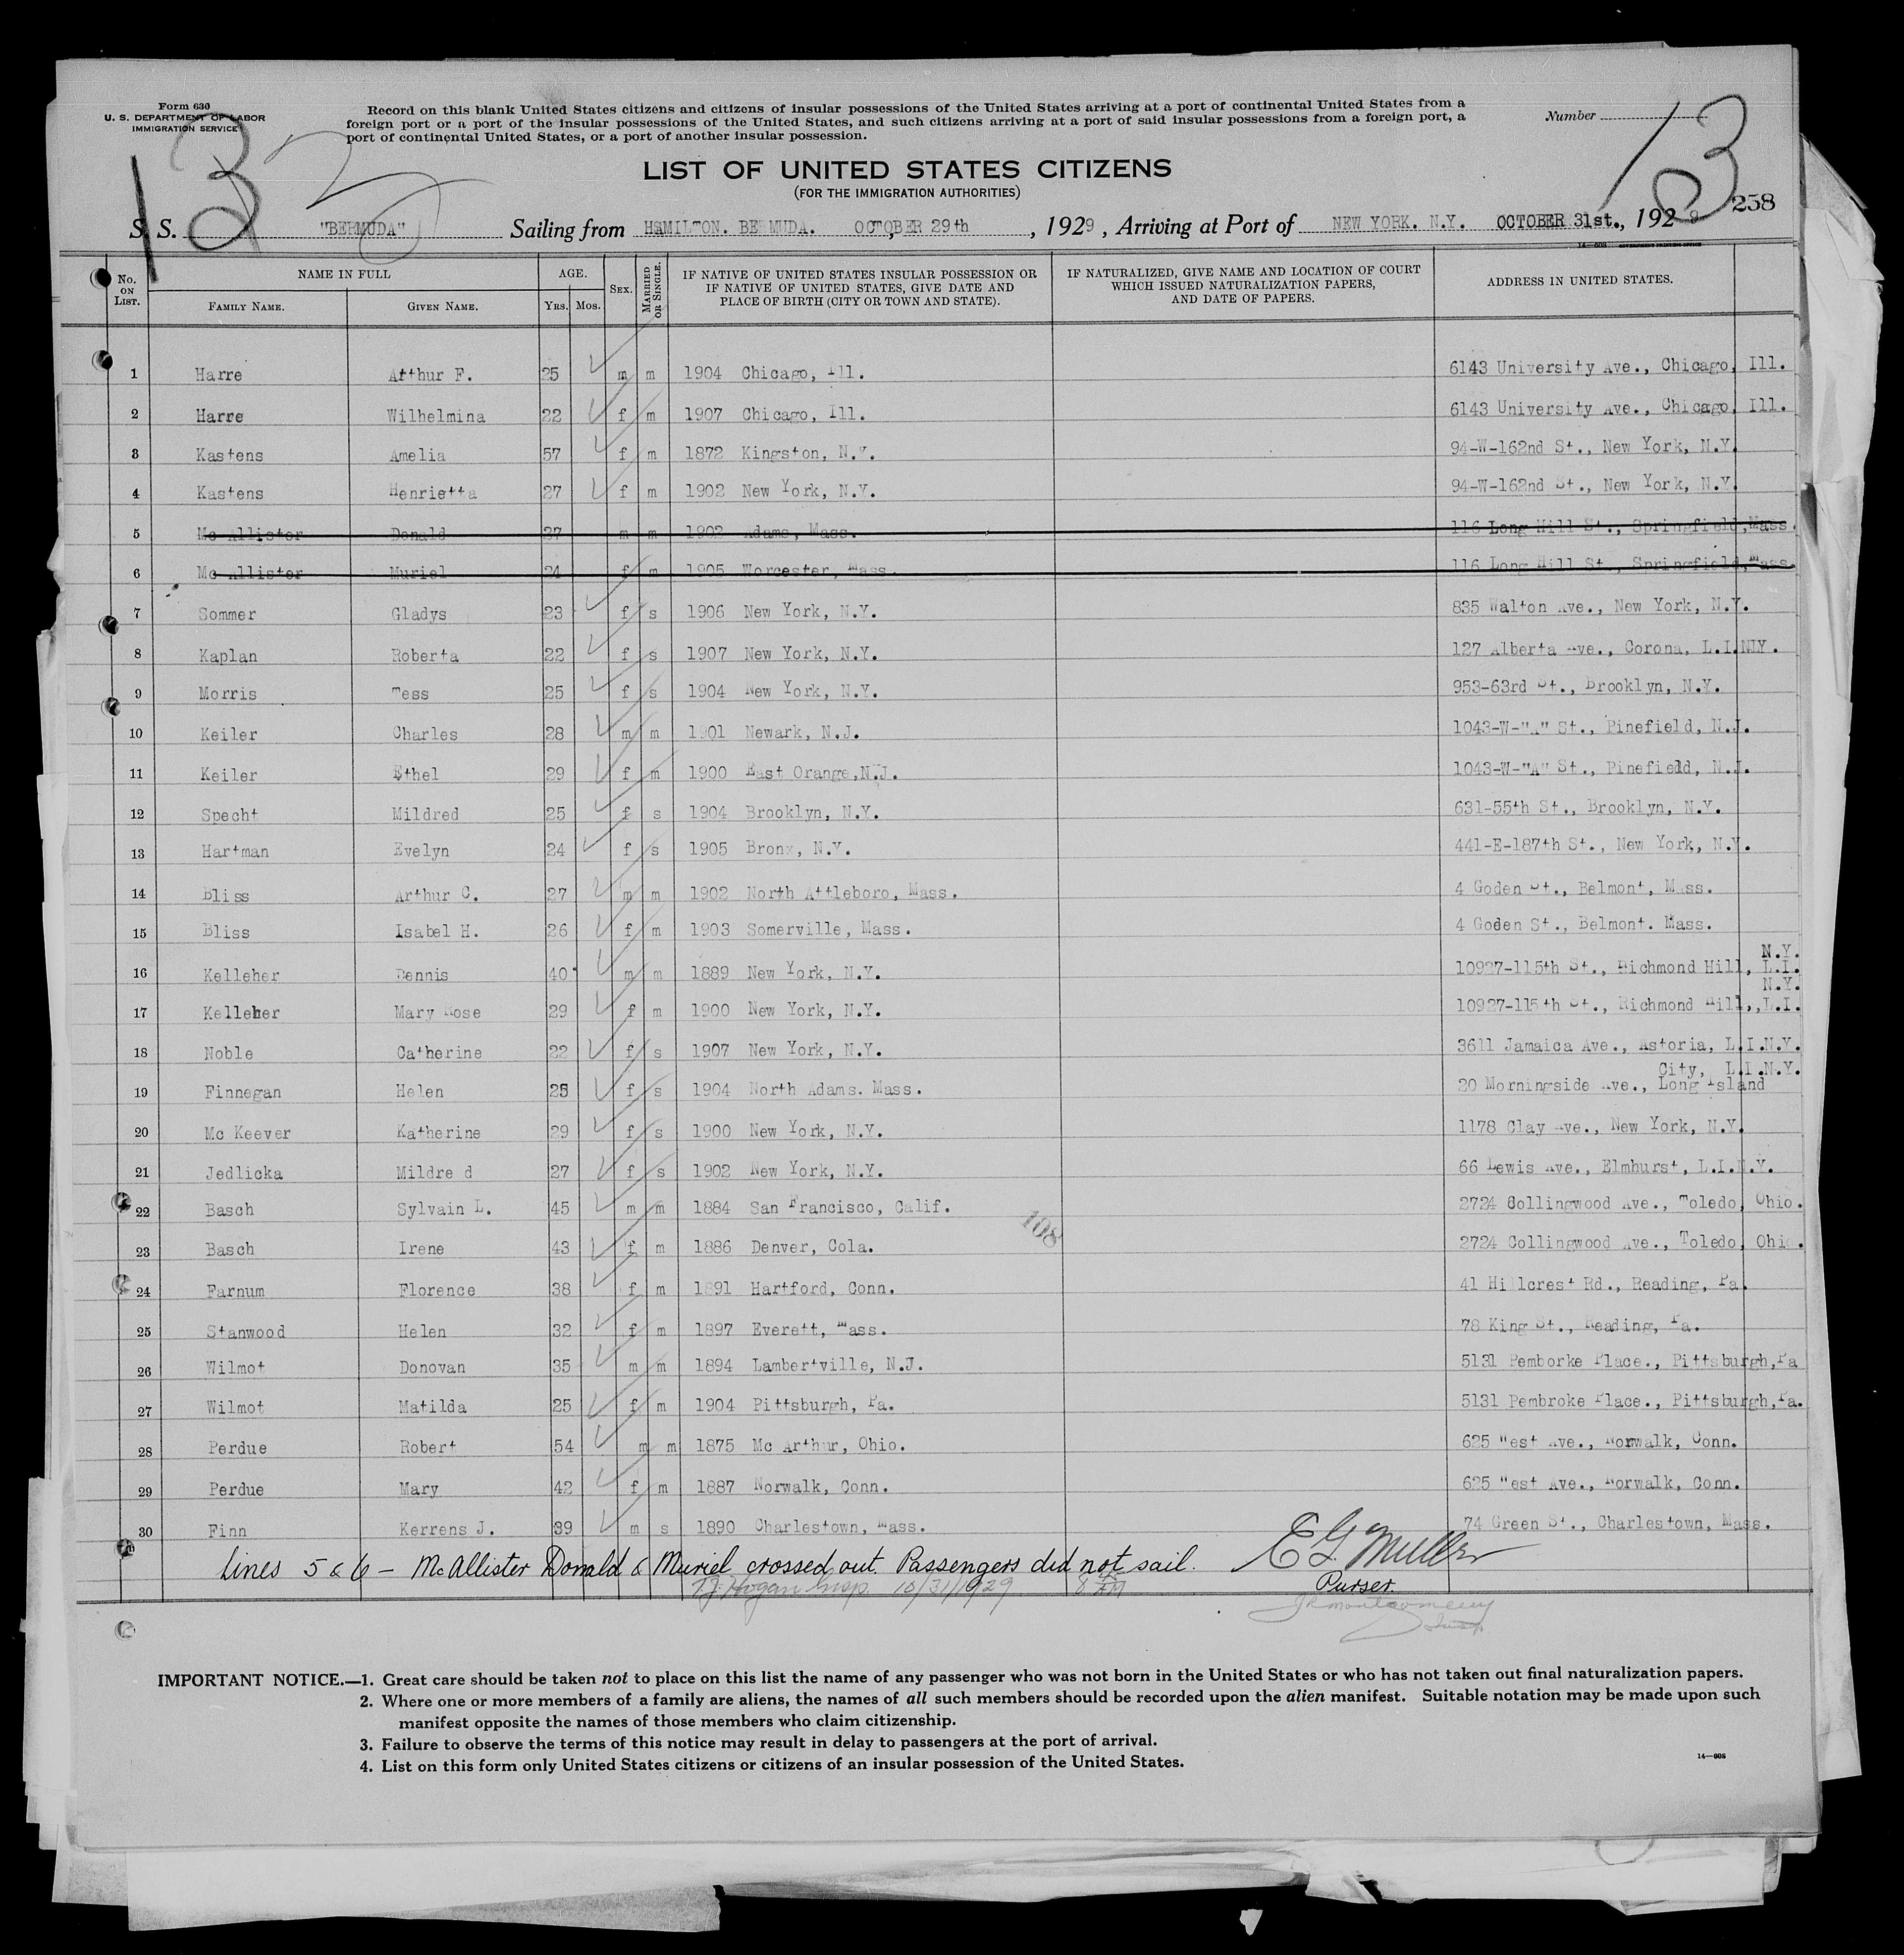 Form 630
U. S. DEPARTMENT OF LABOR
IMMIGRATION SERVICE
Record on this blank United States citizens and citizens of insular possessions of the United States arriving at a port of continental United States from a
foreign port or a port of the insular possessions of the United States, and such citizens arriving at a port of said insular possessions from a foreign port, a
port of continental United States, or a port of another insular possession.
Number
13
LIST OF UNITED STATES CITIZENS
(FOR THE IMMIGRATION AUTHORITIES)
258
S. S. "BERMUDA" Sailing from HAMILTON. BERMUDA. OCTOBER 29th, 1929, Arriving at Port of NEW YORK. N.Y. OCTOBER 31st., 1929
14—608 GOVERNMENT PRINTING OFFICE
No. ON LIST. NAME IN FULL FAMILY NAME. GIVEN NAME. AGE. Yrs. Mos. SEX. MARRIED OR SINGLE. IF NATIVE OF UNITED STATES INSULAR POSSESSION OR IF NATIVE OF UNITED STATES, GIVE DATE AND PLACE OF BIRTH (CITY OR TOWN AND STATE). IF NATURALIZED, GIVE NAME AND LOCATION OF COURT WHICH ISSUED NATURALIZATION PAPERS, AND DATE OF PAPERS. ADDRESS IN UNITED STATES.
1 Harre Arthur F. 25 m m 1904 Chicago, Ill. 6143 University Ave., Chicago, Ill.
2 Harre Wilhelmina 22 f m 1907 Chicago, Ill. 6143 University Ave., Chicago, Ill.
3 Kastens Amelia 57 f m 1872 Kingston, N.Y. 94-W-162nd St., New York, N.Y.
4 Kastens Henrietta 27 f m 1902 New York, N.Y. 94-W-162nd St., New York, N.Y.
5 Mc Allister Donald 27 m m 1902 Adams, Mass. 116 Long Hill St., Springfield, Mass.
6 Mc Allister Muriel 24 f m 1905 Worcester, Mass. 116 Long Hill St., Springfield, Mass.
7 Sommer Gladys 23 f s 1906 New York, N.Y. 835 Walton Ave., New York, N.Y.
8 Kaplan Roberta 22 f s 1907 New York, N.Y. 127 Alberta Ave., Corona, L.I.N.Y.
9 Morris Tess 25 f s 1904 New York, N.Y. 953-63rd St., Brooklyn, N.Y.
10 Keiler Charles 28 m m 1901 Newark, N.J. 1043-W-"A" St., Pinefield, N.J.
11 Keiler Ethel 29 f m 1900 East Orange, N.J. 1043-W-"A" St., Pinefield, N.J.
12 Specht Mildred 25 f s 1904 Brooklyn, N.Y. 631-55th St., Brooklyn, N.Y.
13 Hartman Evelyn 24 f s 1905 Bronx, N.Y. 441-E-187th St., New York, N.Y.
14 Bliss Arthur C. 27 m m 1902 North Attleboro, Mass. 4 Goden St., Belmont, Mass.
15 Bliss Isabel H. 26 f m 1903 Somerville, Mass. 4 Goden St., Belmont. Mass.
16 Kelleher Dennis 40 m m 1889 New York, N.Y. 10927-115th St., Richmond Hill, L.I. N.Y.
17 Kelleher Mary Rose 29 f m 1900 New York, N.Y. 10927-115th St., Richmond Hill,, L.I. N.Y.
18 Noble Catherine 22 f s 1907 New York, N.Y. 3611 Jamaica Ave., Astoria, L.I.N.Y.
19 Finnegan Helen 25 f s 1904 North Adams. Mass. 20 Morningside Ave., Long Island City, L.I.N.Y.
20 Mc Keever Katherine 29 f s 1900 New York, N.Y. 1178 Clay Ave., New York, N.Y.
21 Jedlicka Mildre d 27 f s 1902 New York, N.Y. 66 Lewis Ave., Elmhurst, L.I.N.Y.
22 Basch Sylvain L. 45 m m 1884 San Francisco, Calif. 2724 Collingwood Ave., Toledo, Ohio.
108
23 Basch Irene 43 f m 1886 Denver, Cola. 2724 Collingwood Ave., Toledo, Ohio.
24 Farnum Florence 38 f m 1891 Hartford, Conn. 41 Hillcrest Rd., Reading, Pa.
25 Stanwood Helen 32 f m 1897 Everett, Mass. 78 King St., Reading, Pa.
26 Wilmot Donovan 35 m m 1894 Lambertville, N.J. 5131 Pemborke Place., Pittsburgh, Pa
27 Wilmot Matilda 25 f m 1904 Pittsburgh, Pa. 5131 Pembroke Place., Pittsburgh, Pa.
28 Perdue Robert 54 m m 1875 Mc Arthur, Ohio. 625 West Ave., Norwalk, Conn.
29 Perdue Mary 42 f m 1887 Norwalk, Conn. 625 West Ave., Norwalk, Conn.
30 Finn Kerrens J. 39 m s 1890 Charlestown, Mass. 74 Green St., Charlestown, Mass.
Lines 5 & 6 – McAllister Donald & Muriel crossed out. Passengers did not sail. E G Muller
Purser.
T.J. Hogan Insp. 10/31/1929 8 AM
JR Montgomery
IMPORTANT NOTICE.—1. Great care should be taken not to place on this list the name of any passenger who was not born in the United States or who has not taken out final naturalization papers.
2. Where one or more members of a family are aliens, the names of all such members should be recorded upon the alien manifest. Suitable notation may be made upon such
manifest opposite the names of those members who claim citizenship.
3. Failure to observe the terms of this notice may result in delay to passengers at the port of arrival.
4. List on this form only United States citizens or citizens of an insular possession of the United States.
14—608